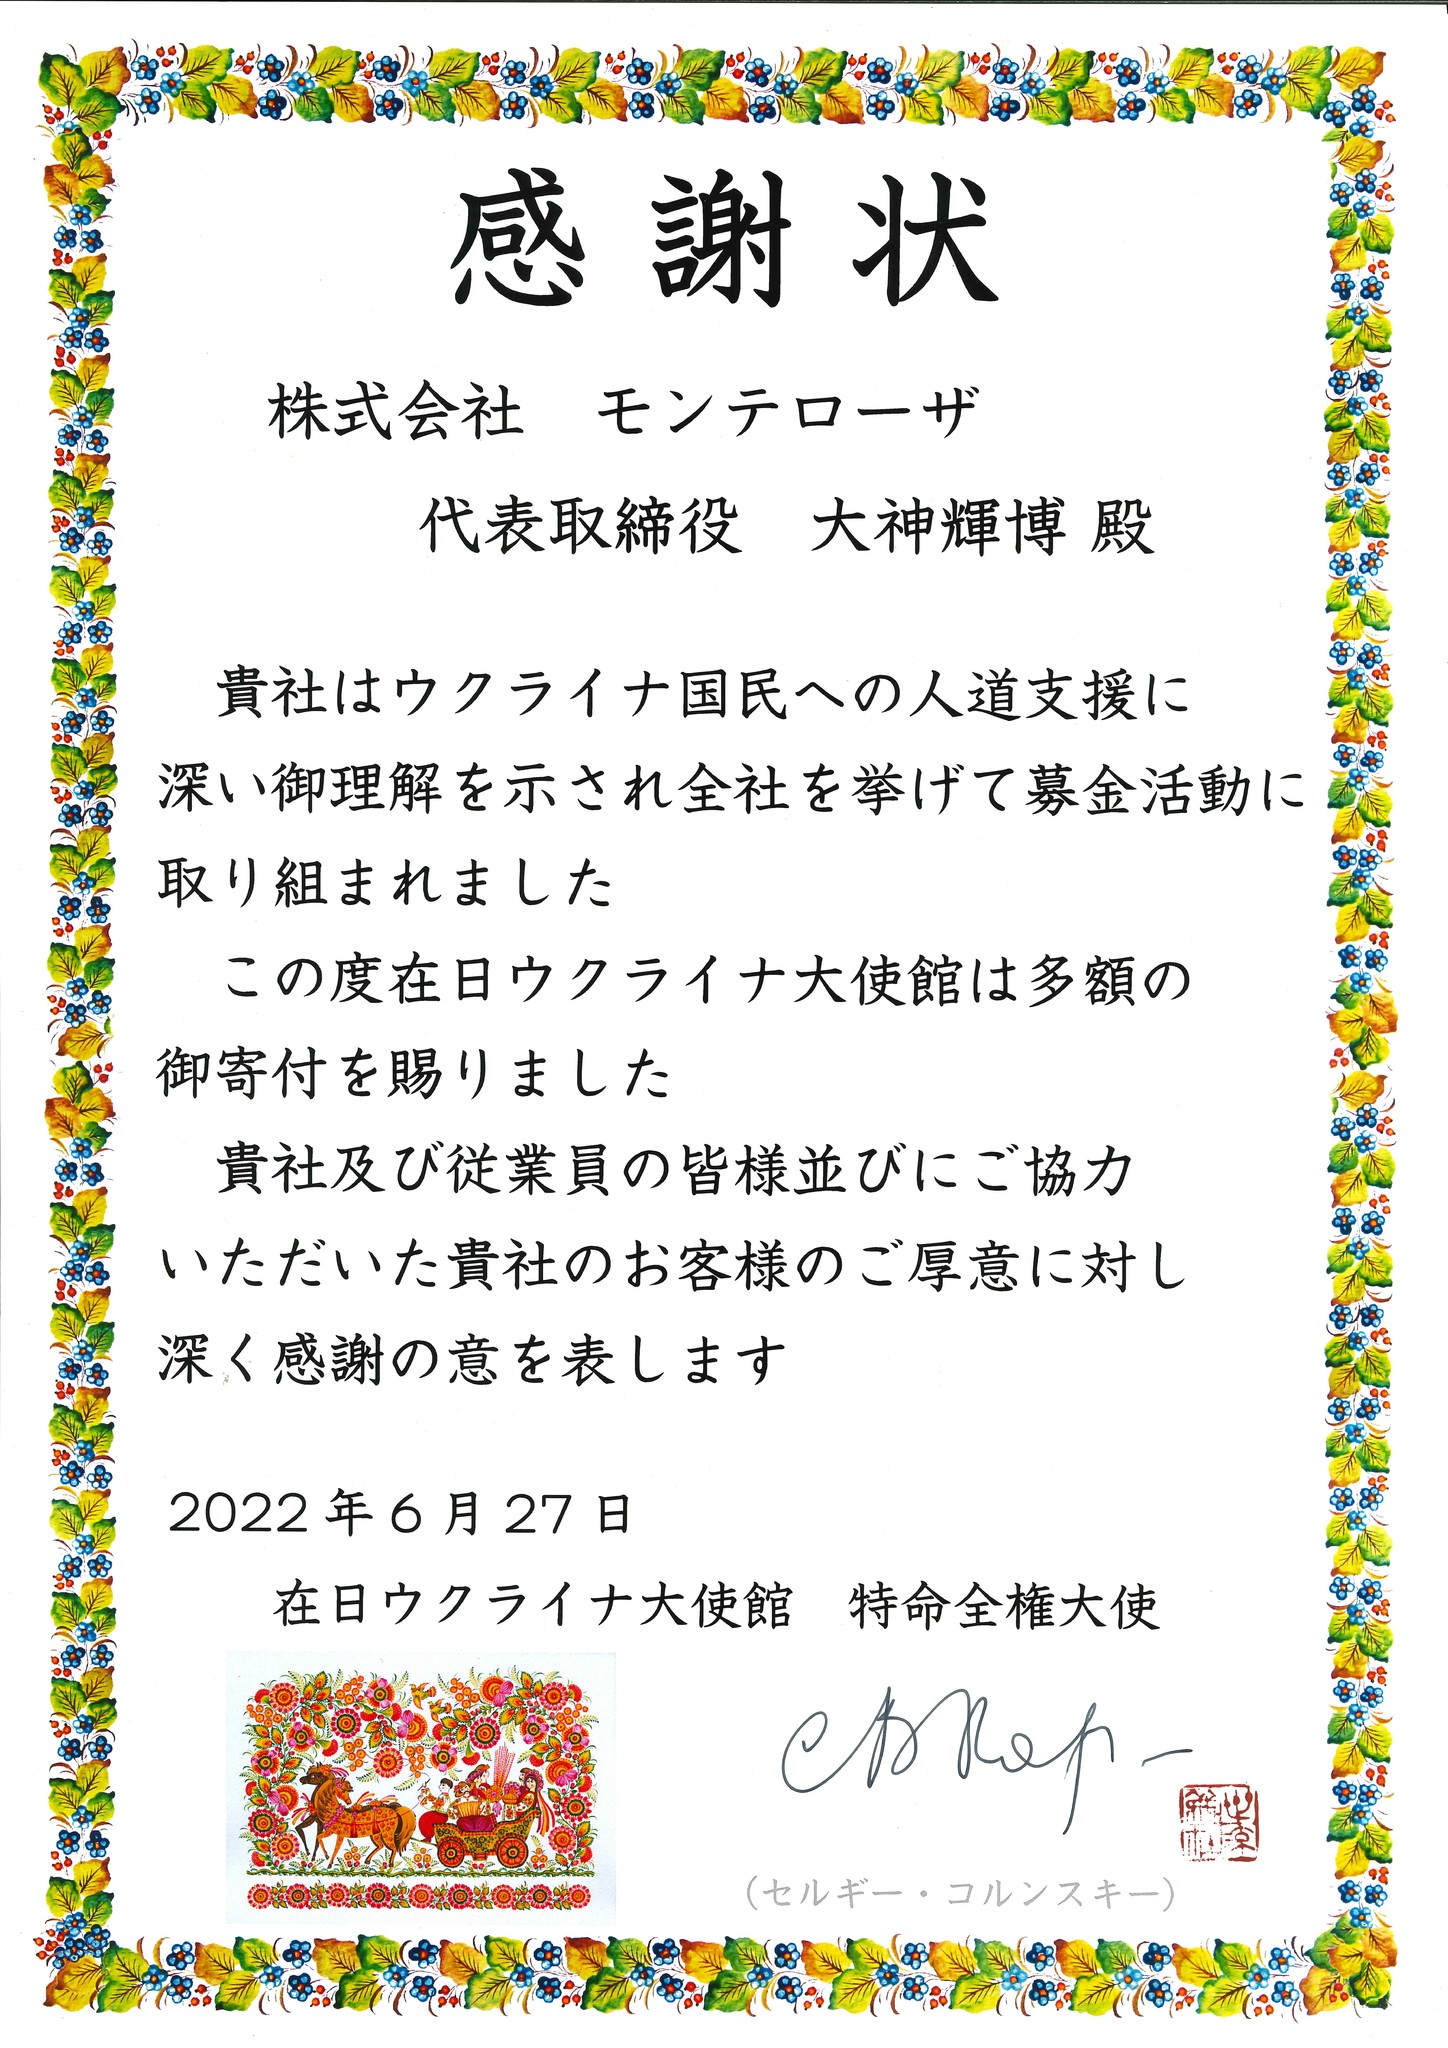 感謝状
株式会社　モンテローザ
代表取締役　大神輝博 殿
貴社はウクライナ国民への人道支援に
深い御理解を示され全社を挙げて募金活動に
取り組まれました
この度在日ウクライナ大使館は多額の
御寄付を賜りました
貴社及び従業員の皆様並びにご協力
いただいた貴社のお客様のご厚意に対し
深く感謝の意を表します
2022 年 6 月 27 日
在日ウクライナ大使館　特命全権大使
（セルギー・コルンスキー）